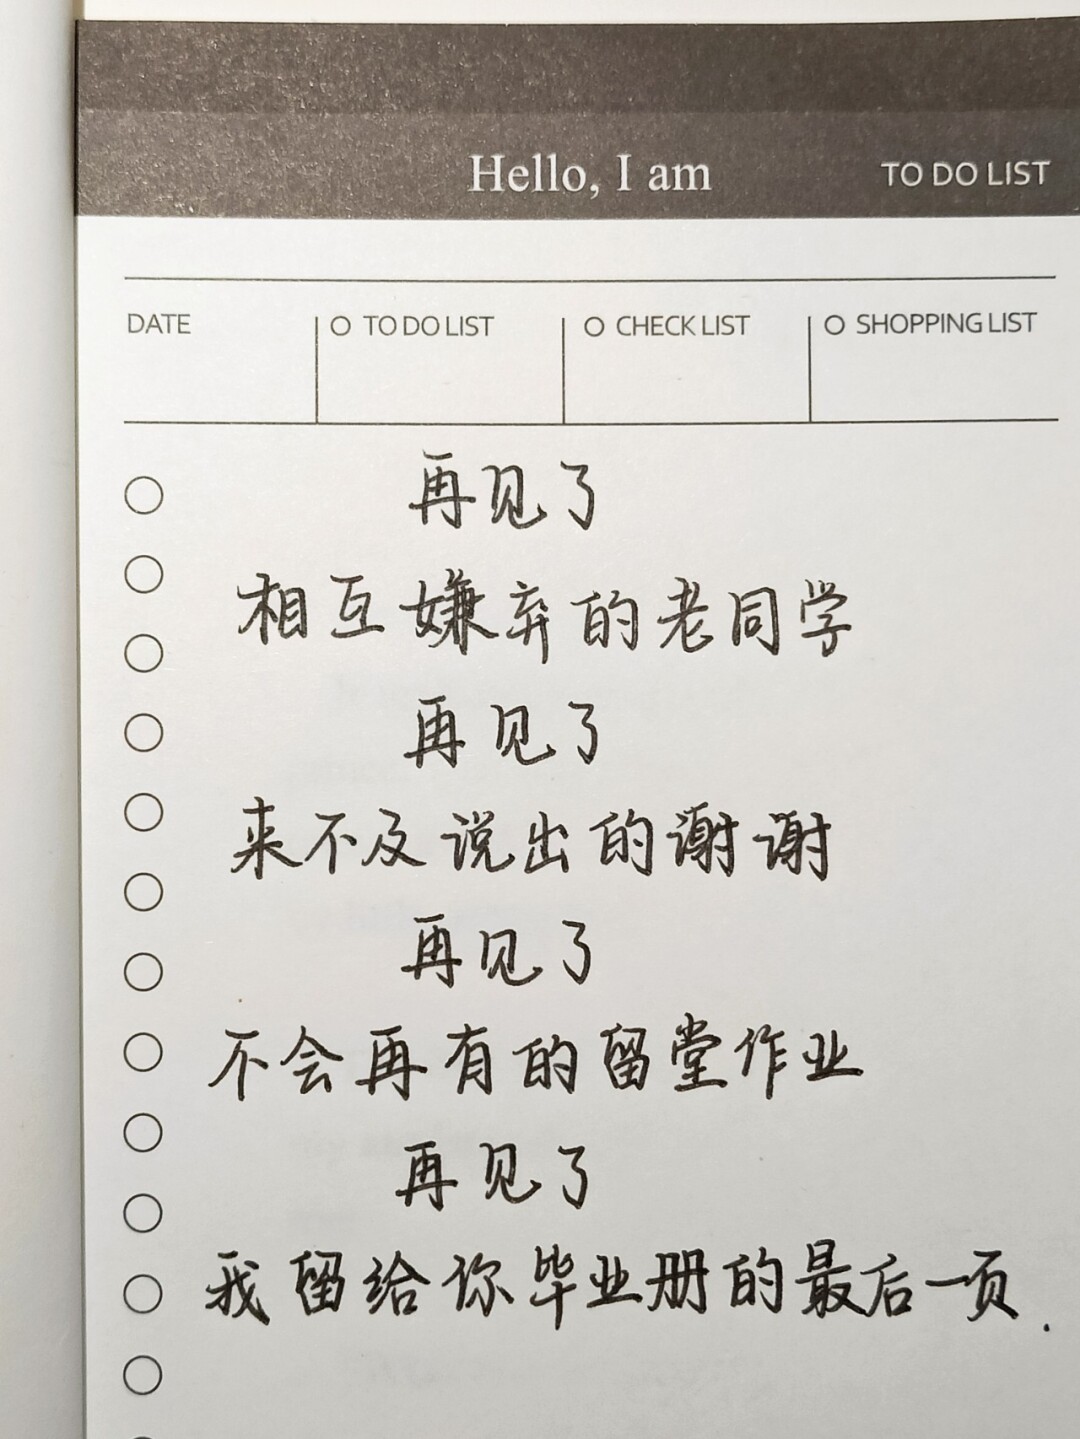 Hello, I am
TO DO LIST
DATE
TO DO LIST
CHECK LIST
SHOPPING LIST
再见了
相互嫌弃的老同学
再见了
来不及说出的谢谢
再见了
不会再有的留堂作业
再见了
我留给你毕业册的最后一页.